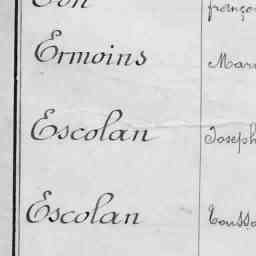 franço
Ermoins Mari
Escolan Joseph
Escolan Toussa